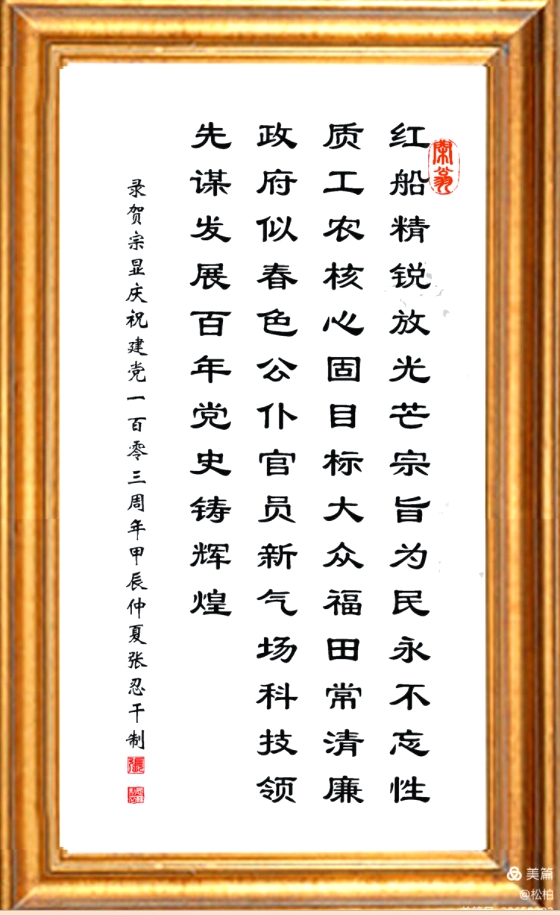 红船精锐放光芒宗旨为民永不忘性
质工农核心固目标大众福田常清廉
政府似春色公仆官员新气场科技领
先谋发展百年党史铸辉煌
录贺宗显庆祝建党一百零三周年甲辰仲夏张忍干制
美篇
@松柏